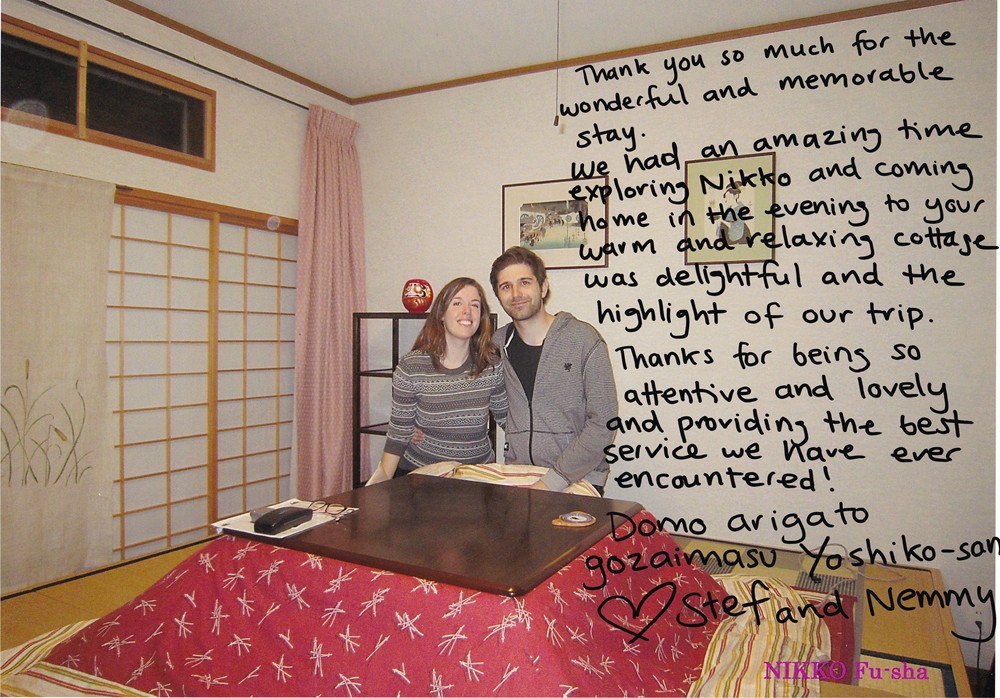 Thank you so much for the
wonderful and memorable
stay.
We had an amazing time
exploring Nikko and coming
home in the evening to your
warm and relaxing cottage
was delightful and the
highlight of our trip.
Thanks for being so
attentive and lovely
and providing the best
service we have ever
encountered!
Domo arigato
gozaimasu Yoshiko-san
♡ Stef and Nemmy
NIKKO Fu-sha